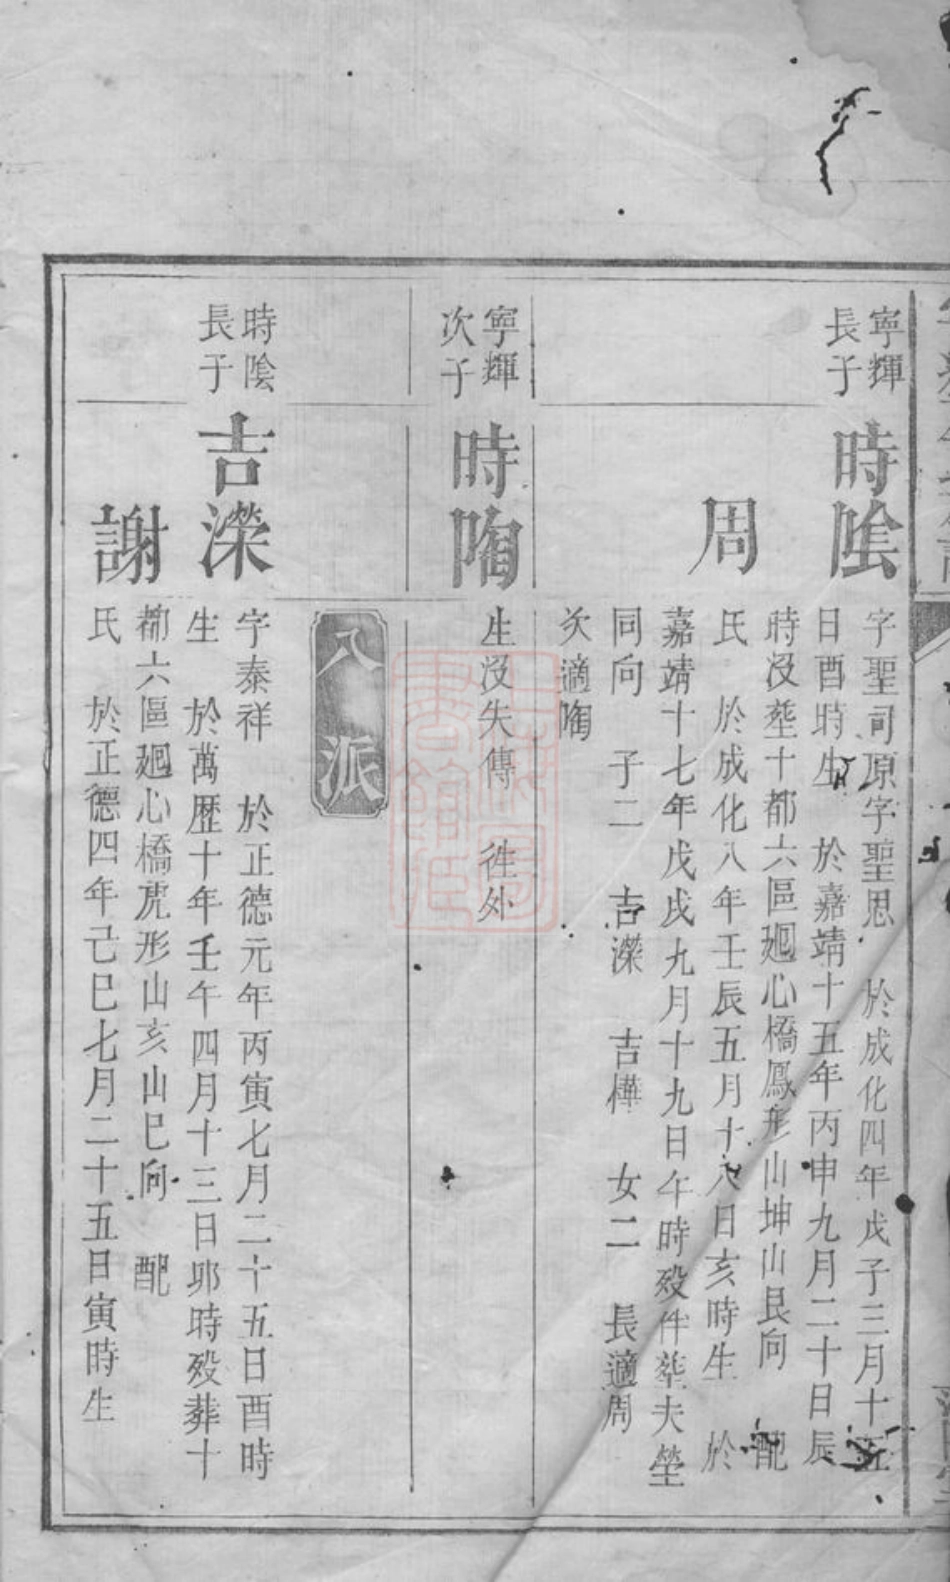 寧輝
長子
時陰
字聖司原字聖思 於成化四年戊子三月十五
日酉時生 於嘉靖十五年丙申九月二十日辰
時沒塟十都六區廻心橋鳳形山坤山艮向 配
周
氏 於成化八年壬辰五月十八日亥時生 於
嘉靖十七年戊戌九月十九日午時殁伴塟夫塋
同向 子二 吉濚 吉樺 女二 長適周
次適陶
寧輝
次子
時陶
生沒失傳 徃外
八派
時陰
長子
吉濚
字泰祥 於正德元年丙寅七月二十五日酉時
生 於萬歷十年壬午四月十三日夘時殁葬十
都六區廻心橋虎形山亥山巳向 配
謝
氏 於正德四年己巳七月二十五日寅時生